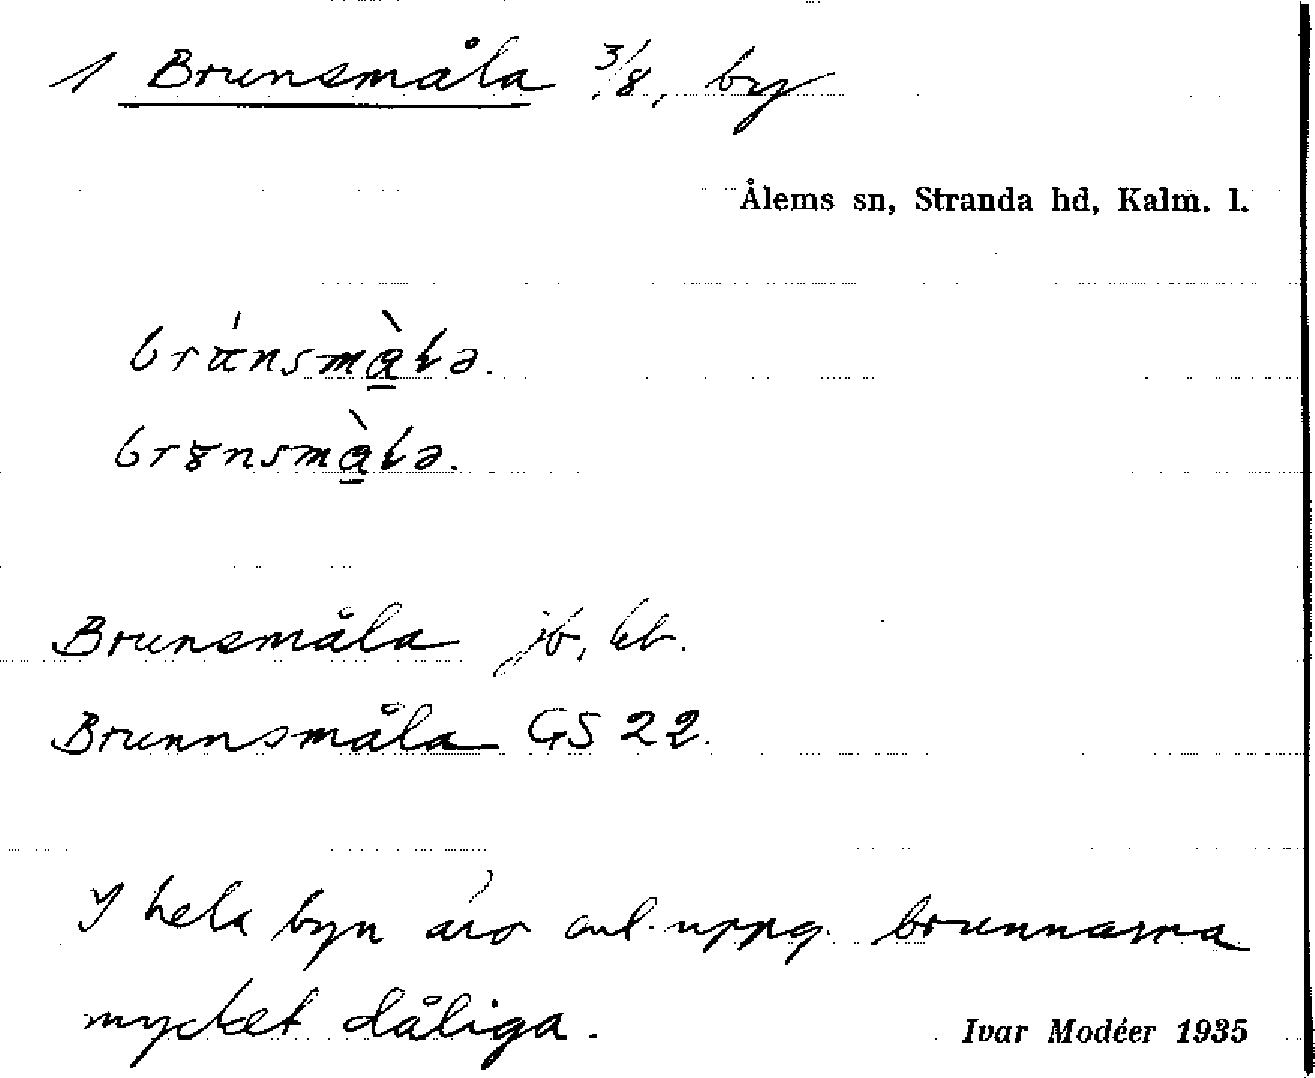 1 Brunsmåla 3/8, by
Ålems sn, Stranda hd, Kalm. l.
Brunsmåla jb, kb.
Brunnsmåla GS 22.
I hela byn äro enl. uppg. brunnarna
mycket dåliga.
Ivar Modéer 1935